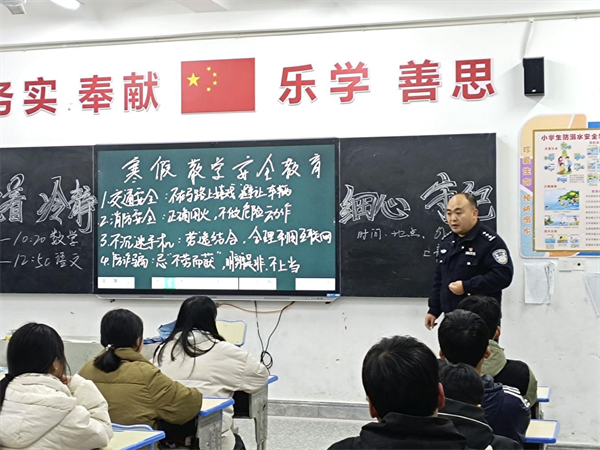 务实 奉献
乐学 善思
寒假 教学安全教育
1.交通安全:不在马路上嬉戏 避让车辆
2.消防安全:正确用火,不做危险动作
3.不沉迷手机:劳逸结合,合理利用互联网
4.防诈骗:忌“不劳而获”,明辨是非,不上当
着 冷静
10:20 数学
12:50 语文
细心 守纪
时间、地点、
小学生防溺水安全
珍爱生命 预防溺水